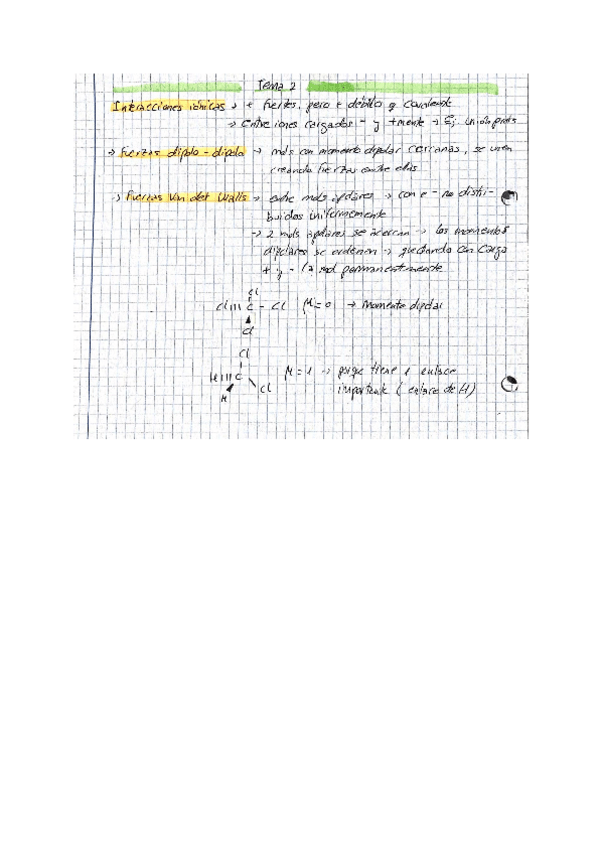 Tema 2
Interacciones iónicas → + fuertes, pero + débiles q covalente
→ Entre iones cargados - y +mente → Ej:
→ Fuerzas dipolo - dipolo → mols con momento dipolar cercanas, se unen
creando fuerzas entre ellas
→ Fuerzas Van der Walls → entre mols apolares → con e- no distri-
buidos uniformemente
→ 2 mols apolares se acercan → los momentos
dipolares se ordenan → quedando con carga
+ y - permanentemente
Cl
Cl C - Cl μ=0 → momento dipolar
Cl
Cl
H C μ=1 → porque tiene 1 enlace
H Cl importante (enlace de H)